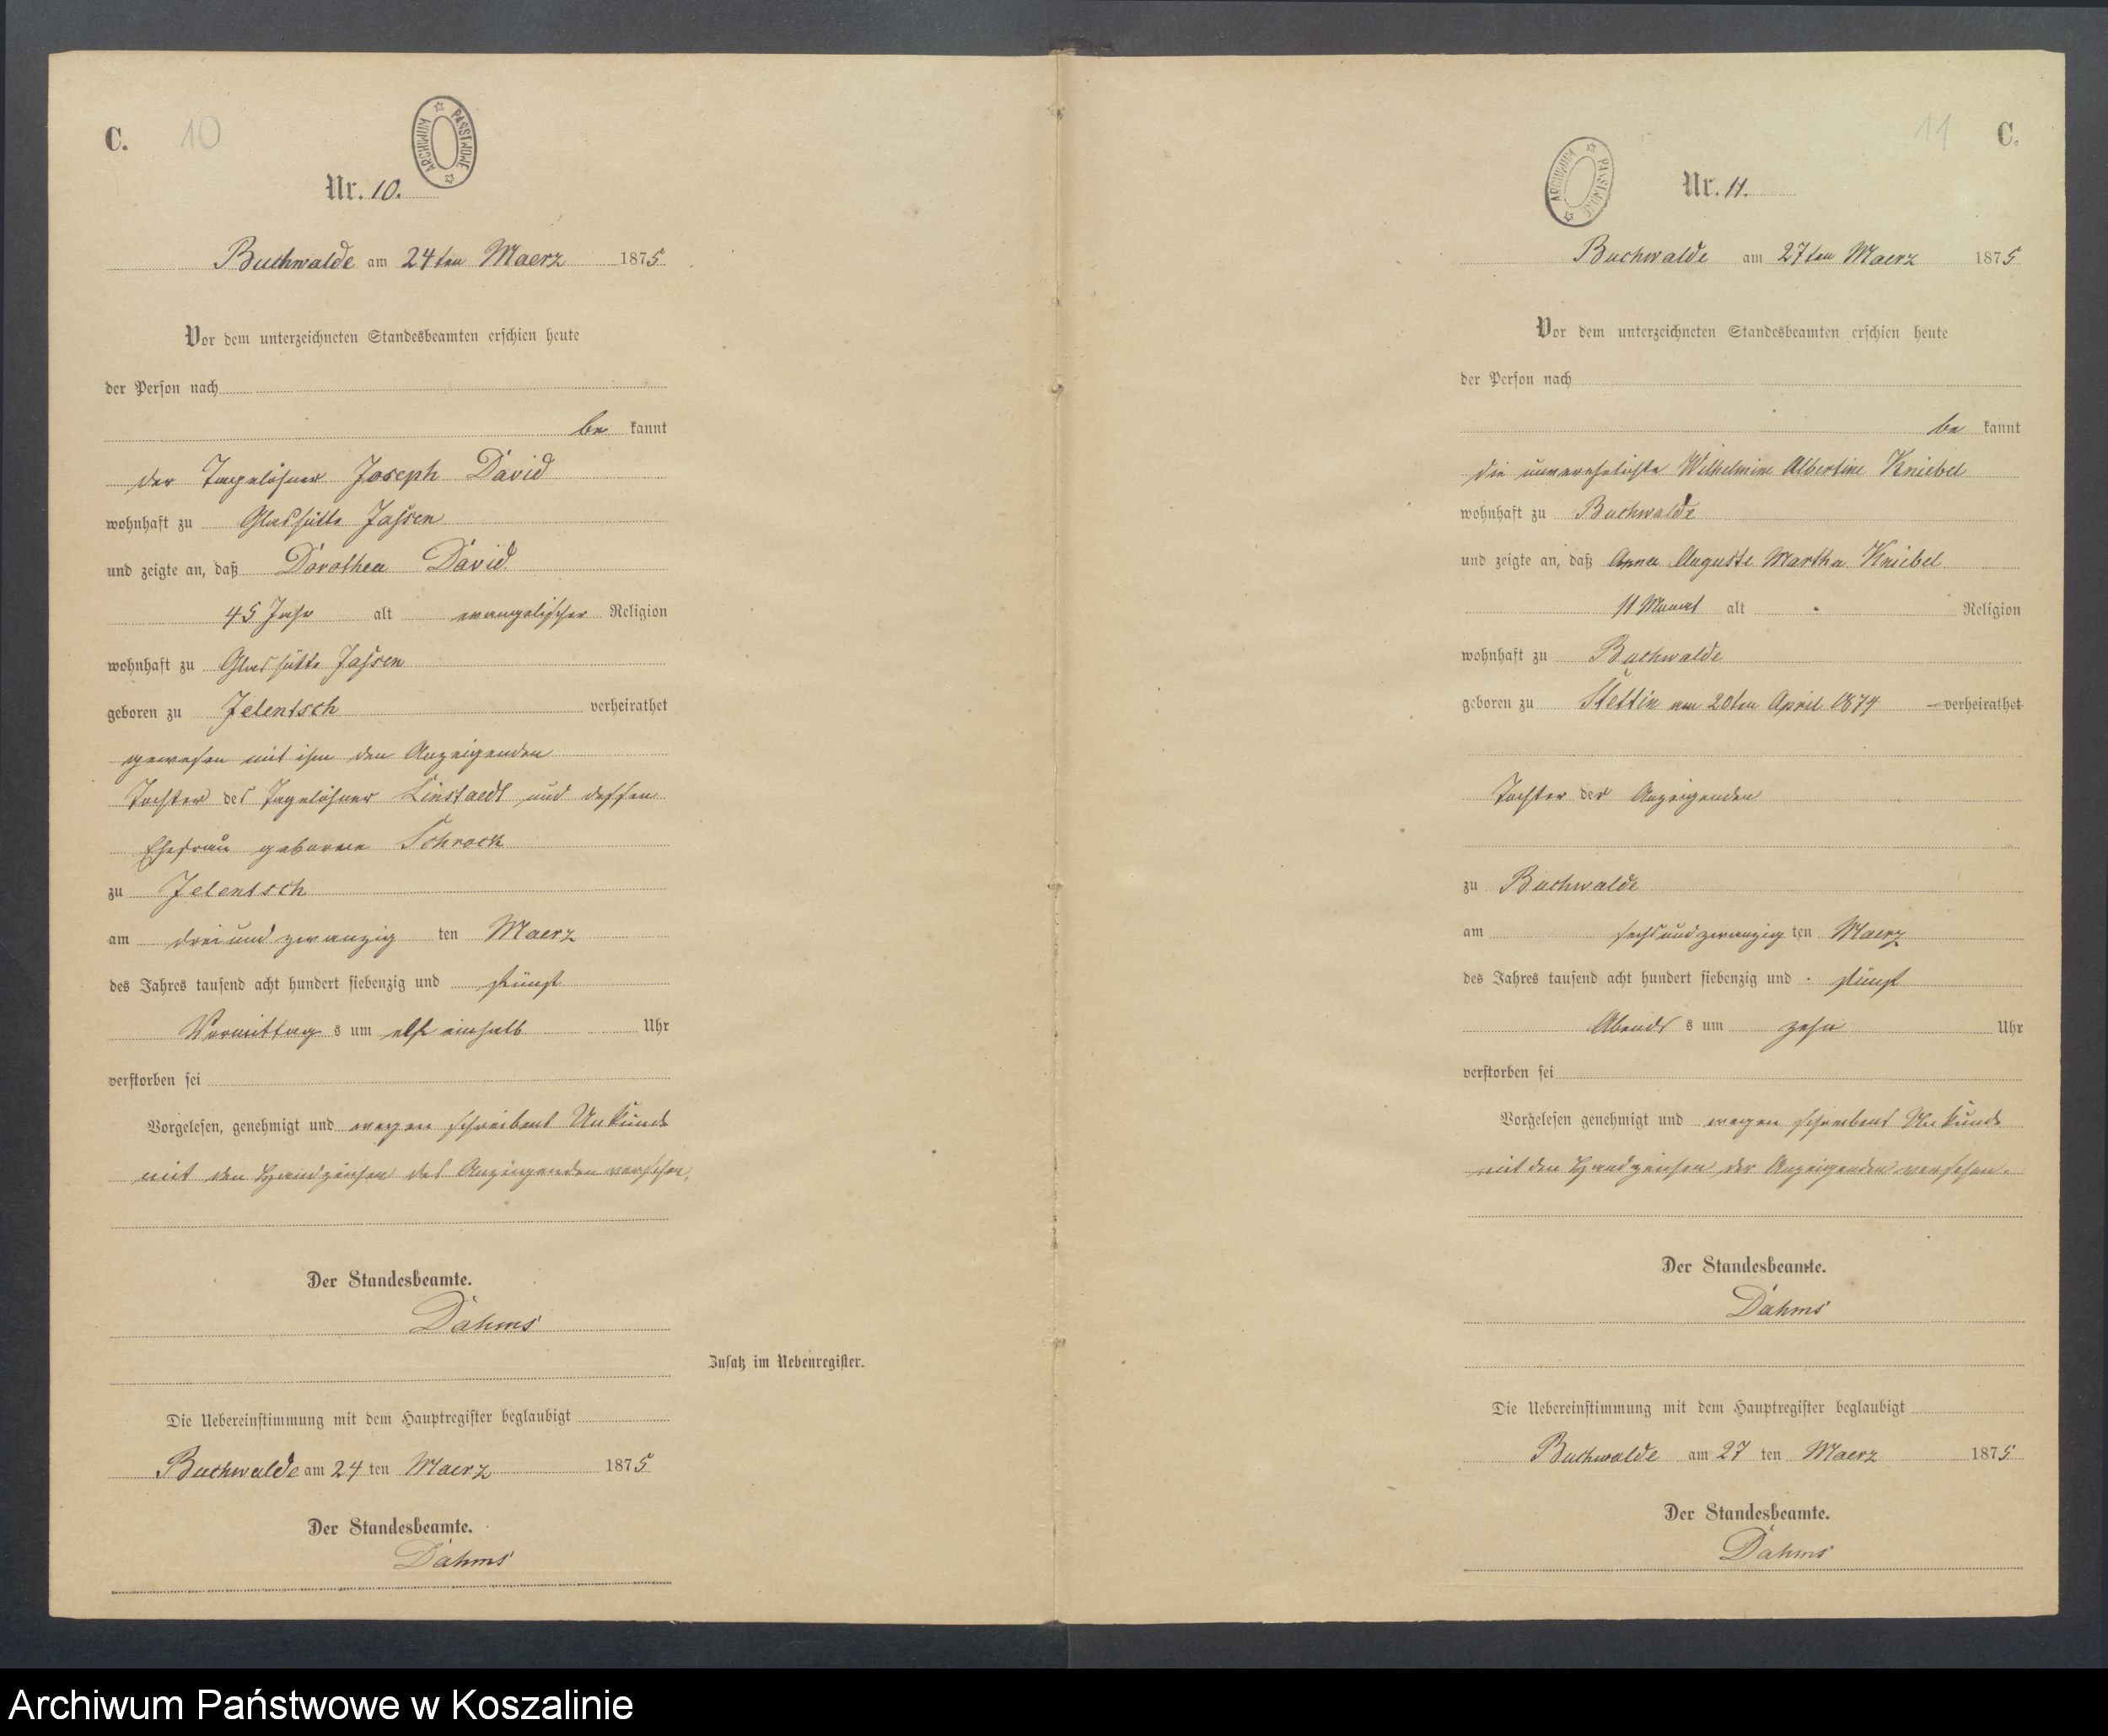 C. 10
ARCHIWUM PAŃSTWOWE
Nr. 10.
Buchwalde am 24ten Maerz 1875
Vor dem unterzeichneten Standesbeamten erschien heute
der Person nach
be kannt
der Tagelöhner Joseph David
wohnhaft zu Glashütte Jassen
und zeigte an, daß Dorothea David
45 Jahr alt evangelischer Religion
wohnhaft zu Glashütte Jassen
geboren zu Jelentsch verheirathet
gewesen mit ihm den Anzeigenden
Tochter des Tagelöhner Linstaedt und dessen
Ehefrau geborne Schrock
zu Jelentsch
am dreiundzwanzig ten Maerz
des Jahres tausend acht hundert siebenzig und fünf
Vormittag s um elf einhalb Uhr
verstorben sei
Vorgelesen, genehmigt und wegen schreibens Unkunde
mit den Handzeichen des Anzeigenden versehen.
Der Standesbeamte.
Dahms
Zusatz im Nebenregister.
Die Uebereinstimmung mit dem Hauptregister beglaubigt
Buchwalde am 24 ten Maerz 1875
Der Standesbeamte.
Dahms
11 C.
ARCHIWUM PAŃSTWOWE
Nr. 11.
Buchwalde am 27ten Maerz 1875
Vor dem unterzeichneten Standesbeamten erschien heute
der Person nach
be kannt
die unverehelichte Wilhelmine Albertine Kniebel
wohnhaft zu Buchwalde
und zeigte an, daß Anna Auguste Martha Kniebel
11 Monat alt Religion
wohnhaft zu Buchwalde
geboren zu Stettin am 20ten April 1874 verheirathet
Tochter der Anzeigenden
zu Buchwalde
am sechsundzwanzig ten Maerz
des Jahres tausend acht hundert siebenzig und fünf
Abends s um zehn Uhr
verstorben sei
Vorgelesen genehmigt und wegen schreibens Unkunde
mit den Handzeichen der Anzeigenden versehen.
Der Standesbeamte.
Dahms
Die Uebereinstimmung mit dem Hauptregister beglaubigt
Buchwalde am 27 ten Maerz 1875
Der Standesbeamte.
Dahms
Archiwum Państwowe w Koszalinie